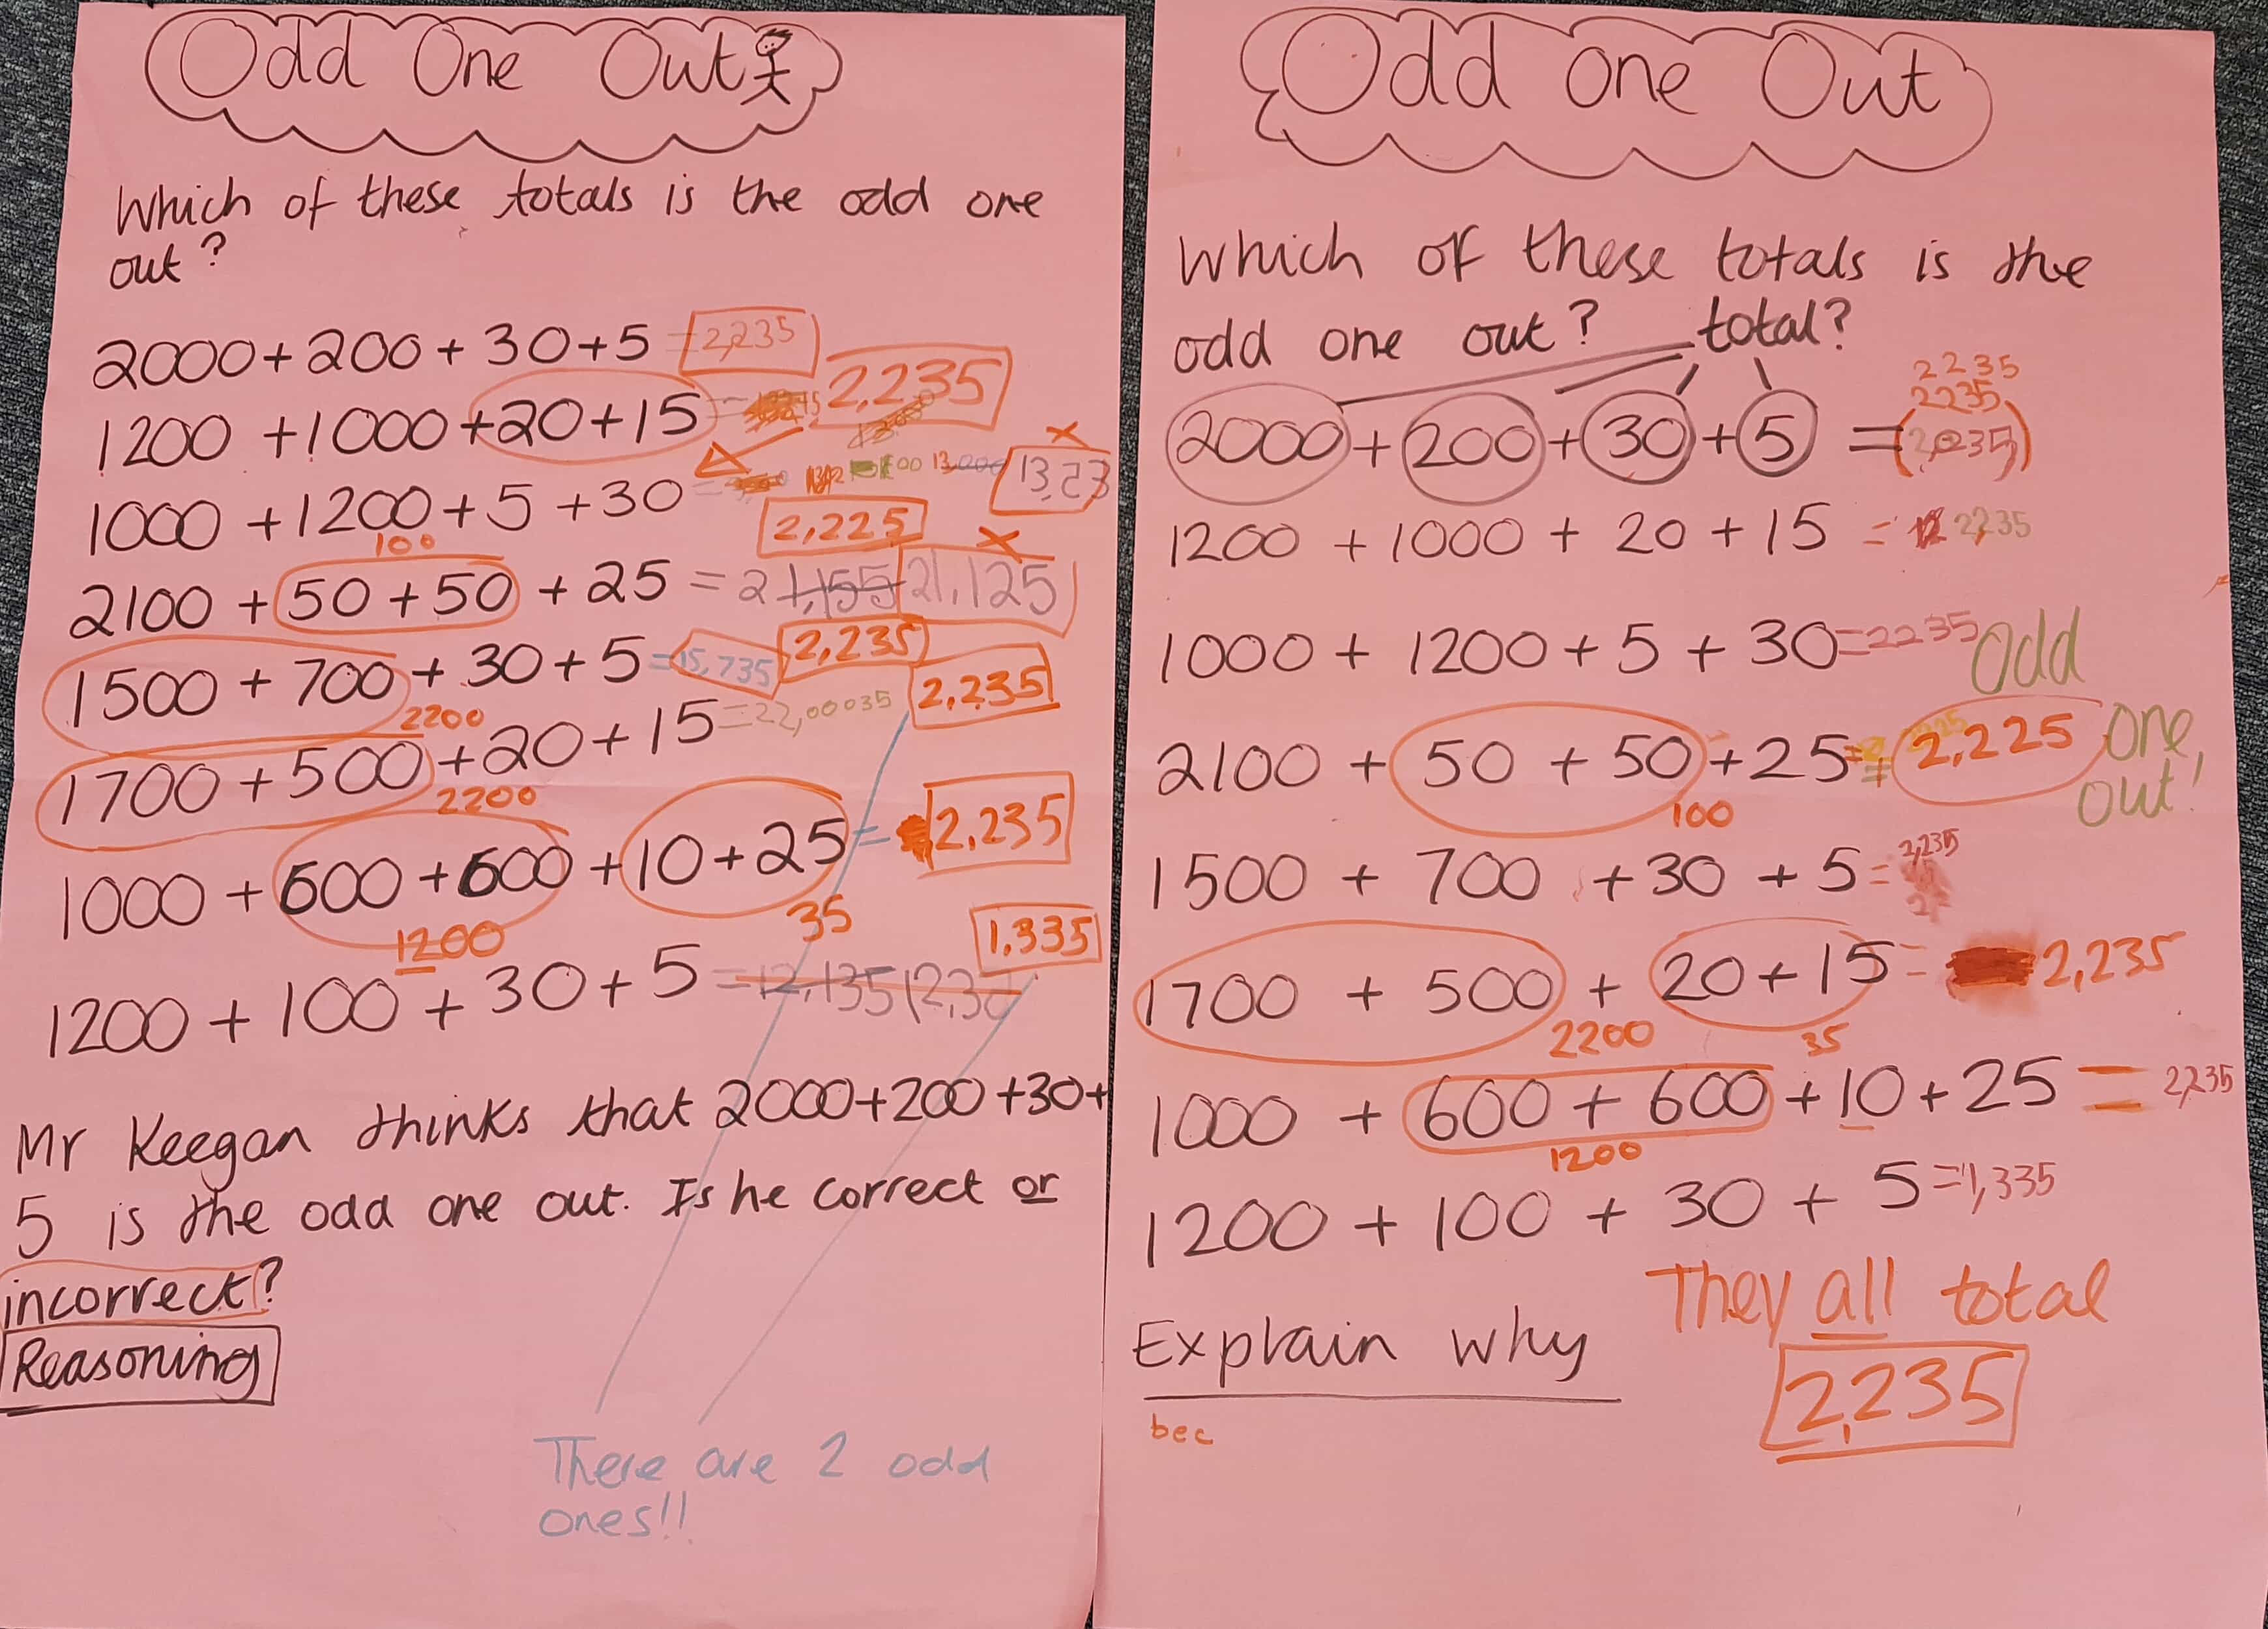 Odd One Out
Which of these totals is the odd one
out?
2000+200+30+5 =2,235
1200 +1000+20+15 = 2,235
1000 +1200+5+30 = 13,000 13,23
100 2,225
2100 + 50 + 50 + 25 = 21,155 21,125
1500 + 700 + 30+5 =15,735 2,235
2200
1700 + 500 +20+15 =22,00035 2,235
2200
1000 + 600 +600 +10+25 = 2,235
1200 35
1,335
1200 + 100 + 30+5 =12,135 12,30
Mr Keegan thinks that 2000+200+30+
5 is the odd one out. Is he correct or
incorrect?
Reasoning
There are 2 odd
ones!!
Odd One Out
Which of these totals is the
odd one out? total?
2235
2235
2000 + 200 + 30 + 5 = 2,235
1200 + 1000 + 20 + 15 = 2,235
1000 + 1200 + 5 + 30 =2235 Odd
2100 + 50 + 50 +25 = 2,225 one,
100 out!
1500 + 700 +30 + 5 = 2,235
1700 + 500 + 20+15 = 2,235
2200 35
1000 + 600 + 600 +10 + 25 = 2,235
1200
1200 + 100 + 30 + 5 =1,335
They all total
Explain why
2,235
bec